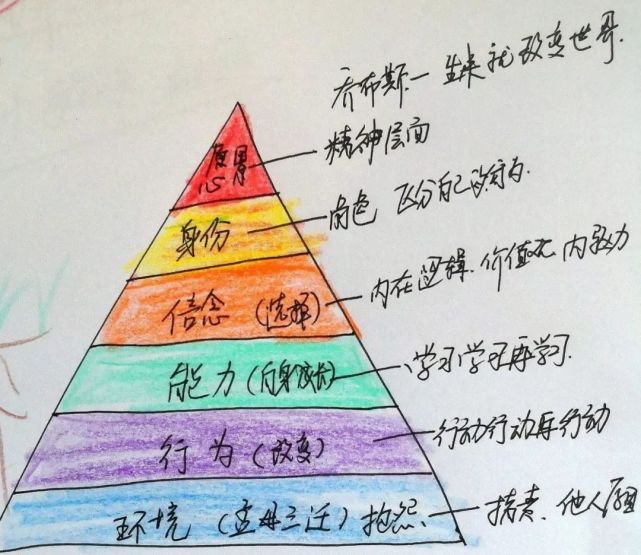 乔布斯一生来就改变世界.
愿景
精神层面
身份
角色 区分自己的行为.
信念 (选择)
内在逻辑、价值观 内驱力
能力 (自身成长)
学习学习再学习.
行为 (改变)
行动行动再行动
环境 (孟母三迁) 抱怨
指责、他人原因